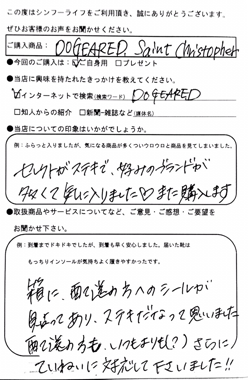 この度はシンフーライフをご利用頂き、誠にありがとうございます。
ぜひお客様のお声をお聞かせください。
ご購入商品: DOGEARED Saint Christopher
●今回のご購入は:☑ご自身用 □プレゼント
●当店に興味を持たれたきっかけを教えてください。
☑インターネットで検索(検索ワード) DOGEARED
□知人からの紹介 □新聞・雑誌など(媒体名)
●当店についての印象はいかがでしょうか。
例:ふらっと入りましたが、気になる商品が多くついウロウロと商品を見てしまいました。
セレクトがステキで、好みのブランドが
多くて気に入りました♡また購入します
●取扱商品やサービスについてなど、ご意見・ご感想・ご要望を
お聞かせ下さい。
例:到着までドキドキでしたが、到着も早く安心しました。届いた靴は
もっちりインソールが気持ちよく履きやすかったです。
箱に、配て達の方へのシールが
貼ってあり、ステキだなって思いました
配て達の方も、いつもより(?)さらに
ていねいに対応して下さいました!!